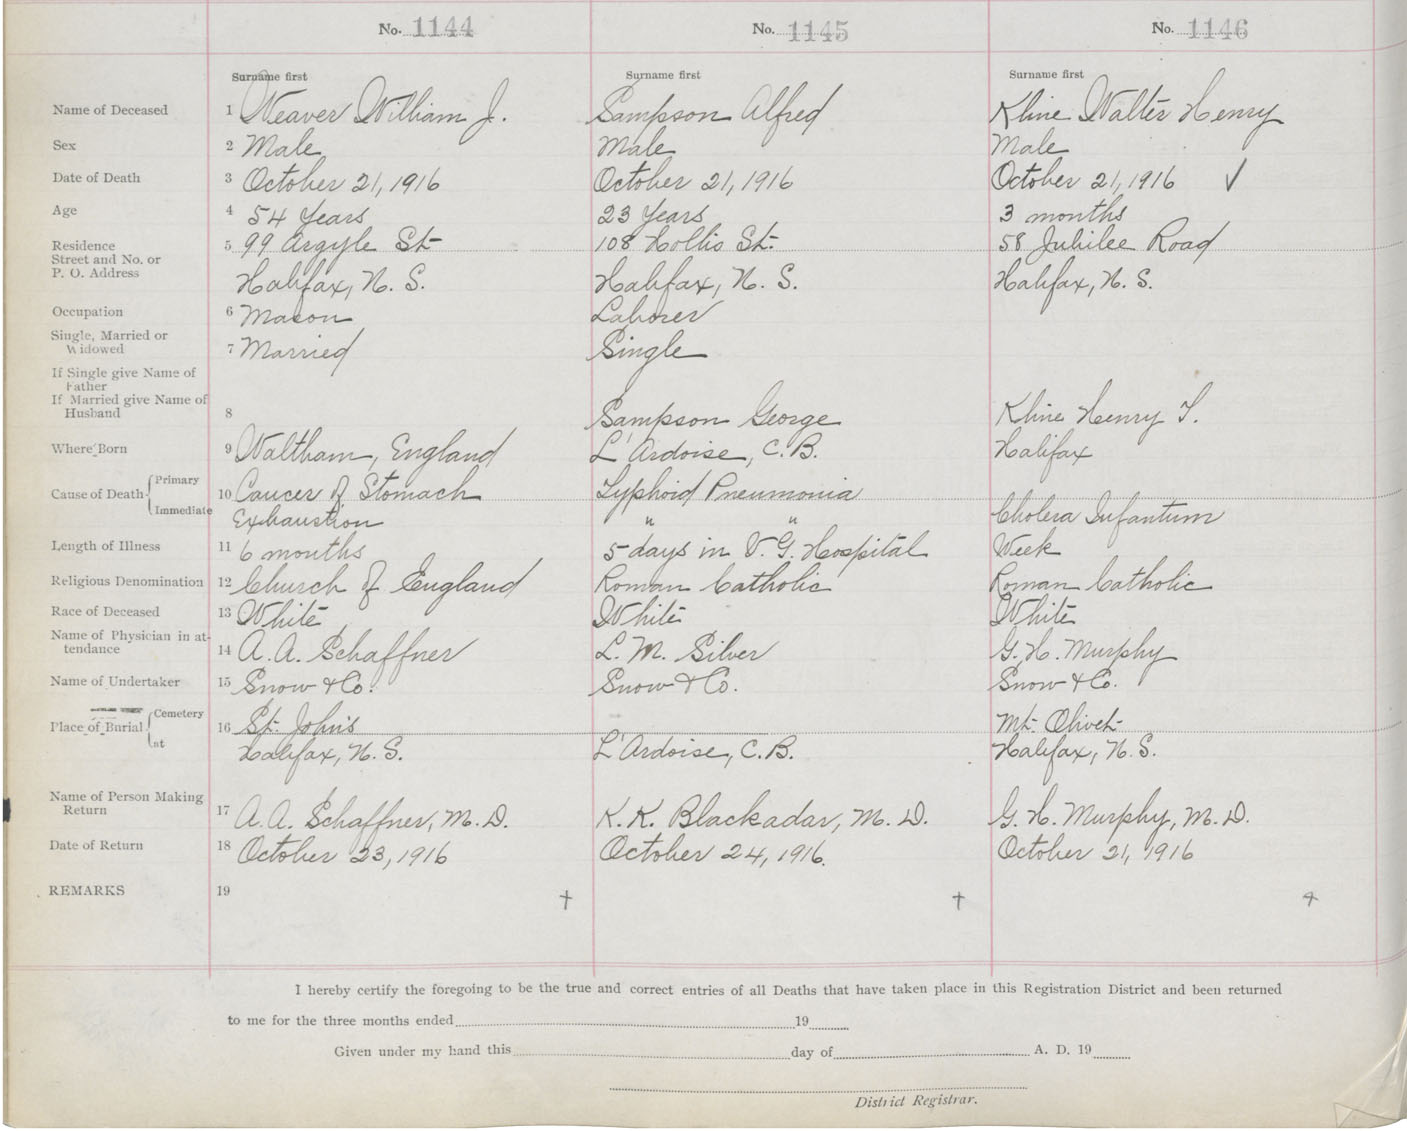 No. 1144 No. 1145 No. 1146
Surname first Surname first Surname first
Name of Deceased 1 Weaver William J. Sampson Alfred Kline Walter Henry
Sex 2 Male Male Male
Date of Death 3 October 21, 1916 October 21, 1916 October 21, 1916 ✓
Age 4 54 Years 23 Years 3 months
Residence 5 99 Argyle St. 108 Hollis St. 58 Jubilee Road
Street and No. or
P. O. Address Halifax, N. S. Halifax, N. S. Halifax, N. S.
Occupation 6 Mason Laborer
Single, Married or
Widowed 7 Married Single
If Single give Name of
Father
If Married give Name of
Husband 8 Sampson George Kline Henry T.
Where Born 9 Waltham, England L'Ardoise, C. B. Halifax
Cause of Death Primary 10 Cancer of Stomach Typhoid Pneumonia
Immediate Exhaustion " " Cholera Infantum
Length of Illness 11 6 months 5 days in V. G. Hospital Week
Religious Denomination 12 Church of England Roman Catholic Roman Catholic
Race of Deceased 13 White White White
Name of Physician in at-
tendance 14 A. A. Schaffner L. M. Silver G. H. Murphy
Name of Undertaker 15 Snow & Co. Snow & Co. Snow & Co.
Place of Burial Cemetery 16 St. John's Mt. Olivet
at Halifax, N. S. L'Ardoise, C. B. Halifax, N. S.
Name of Person Making
Return 17 A. A. Schaffner, M. D. K. K. Blackadar, M. D. G. H. Murphy, M. D.
Date of Return 18 October 23, 1916 October 24, 1916. October 21, 1916
REMARKS 19
I hereby certify the foregoing to be the true and correct entries of all Deaths that have taken place in this Registration District and been returned
to me for the three months ended 19
Given under my hand this day of A. D. 19
District Registrar.